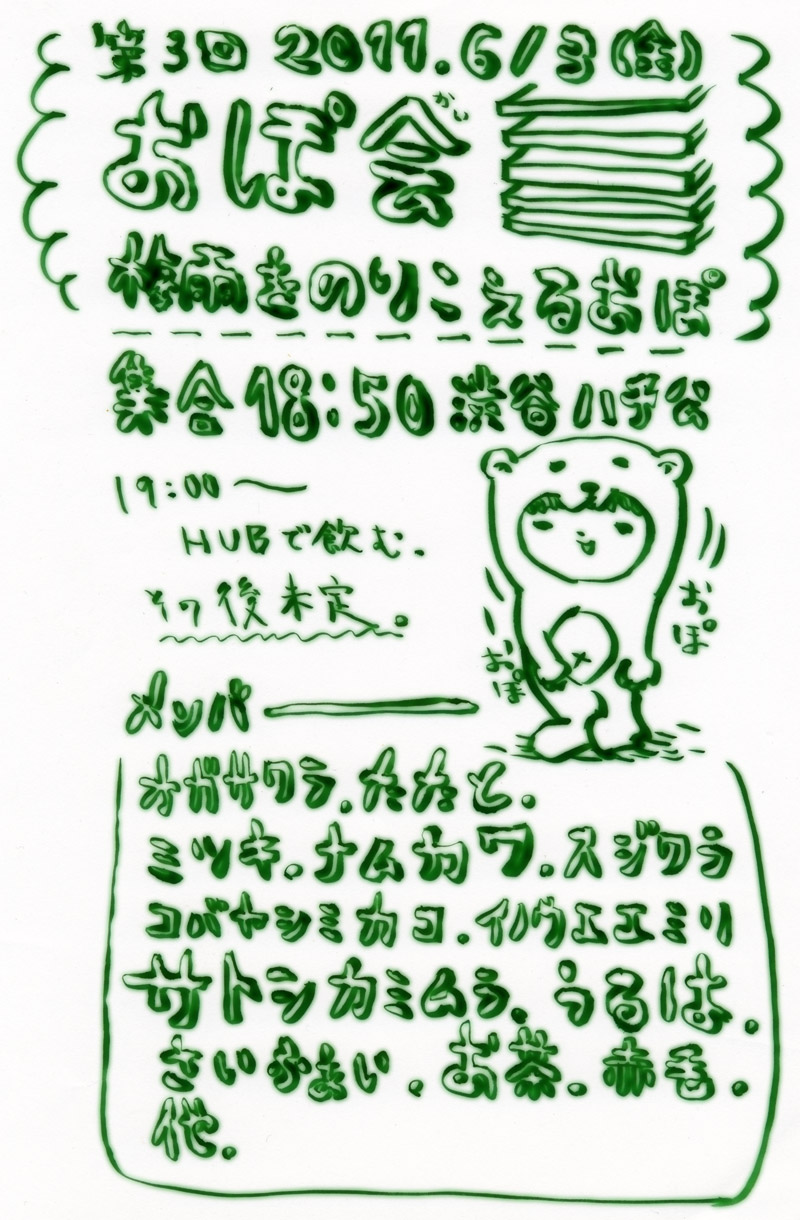 第3回 2011.6/3(金)
おぽ会
がい
梅雨をのりこえるおぽ
集合18:50渋谷ハチ公
19:00〜
HUBで飲む。
その後未定。
おぽ
おぽ
メンバ
オガサワラ.たたと.
ミツキ.ナムカワ.スジワラ
コバヤシミカコ.イノウエエミリ
サトシカミムラ.うるは.
さいふまい.お茶.赤毛.
他.